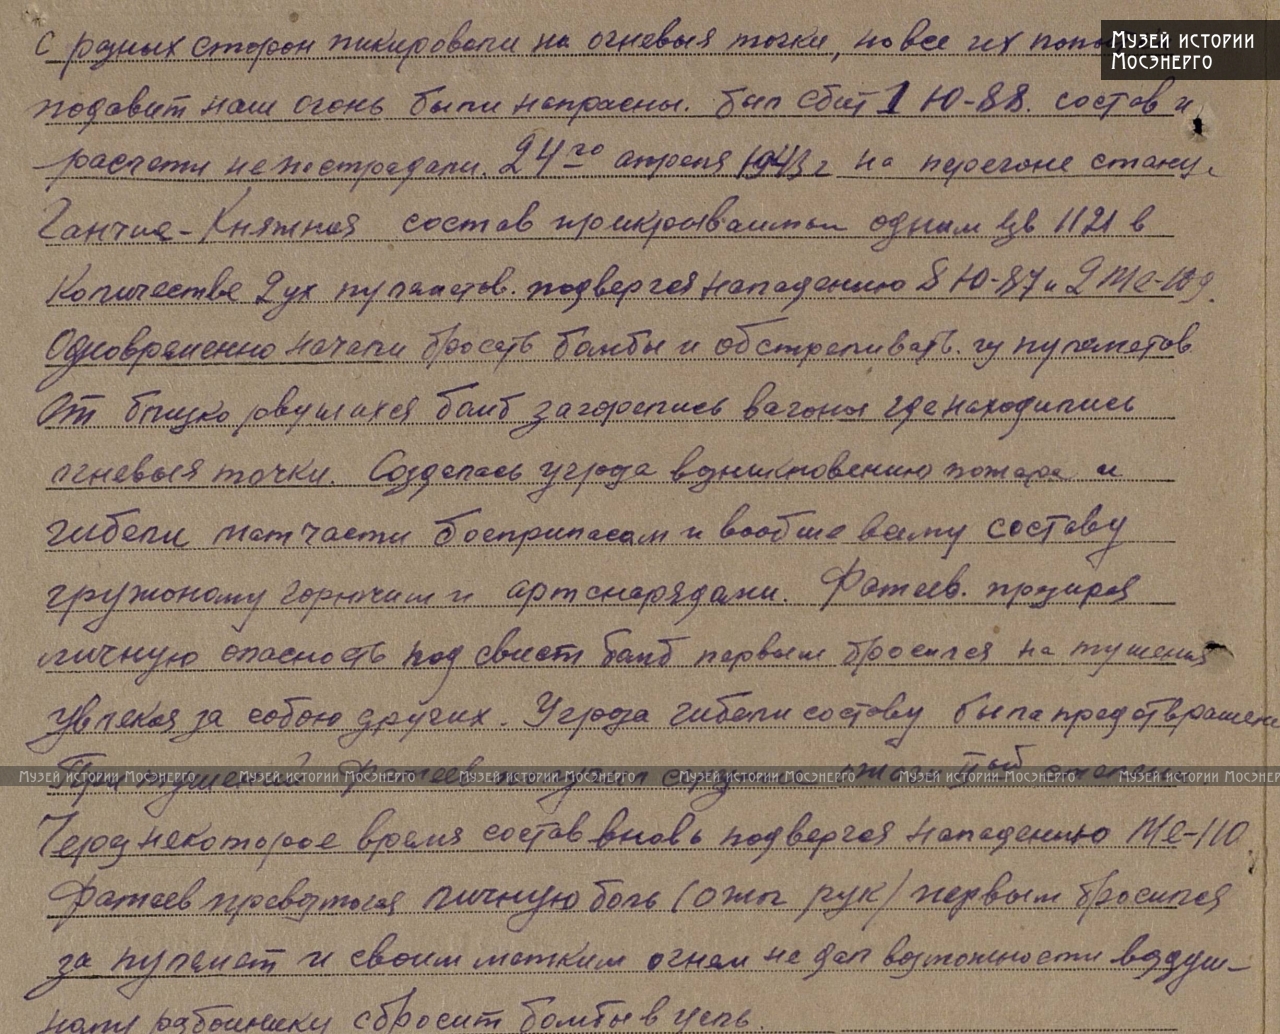 с разных сторон пикировали на огневыя точки, но все их
МУЗЕЙ ИСТОРИИ
МОСЭНЕРГО
подавит наш огонь были напрасны. был сбит 1 Ю-88. состав и
расчеты не пострадали. 24го апреля 1943 г на перегоне станц.
Княжная состав одним в
Количестве 2ух пулеметов. подвергся нападению 8 Ю-87 и 2 Ме-109.
Одновременно начали бросать бомбы и обстреливать. из пулеметов
От близко рвушихся бомб загорелись вагоны где находились
огневыя точки. Создалась угроза вдникновению пожара и
гибели матчасти боеприпасам и вообше всему составу
гружоному горючим и артснарядами. Фатеев. призирая
личную опасность под свист бомб первым бросился на тушения
увлекая за собою других. Угроза гибели составу была предотврашена
При тушений Фатеев получил ожоги
МУЗЕЙ ИСТОРИИ МОСЭНЕРГО МУЗЕЙ ИСТОРИИ МОСЭНЕРГО МУЗЕЙ ИСТОРИИ МОСЭНЕРГО МУЗЕЙ ИСТОРИИ МОСЭНЕРГО МУЗЕЙ ИСТОРИИ МОСЭНЕРГО МУЗЕЙ ИСТОРИИ МОСЭНЕРГО
Через некоторое время состав вновь подвергся нападению Ме-110.
Фатеев личную боль (ожог рук) первым бросился
за пулемет и своим метким огнем не дал возможности воздуш-
ному бросит бомбы в цель.